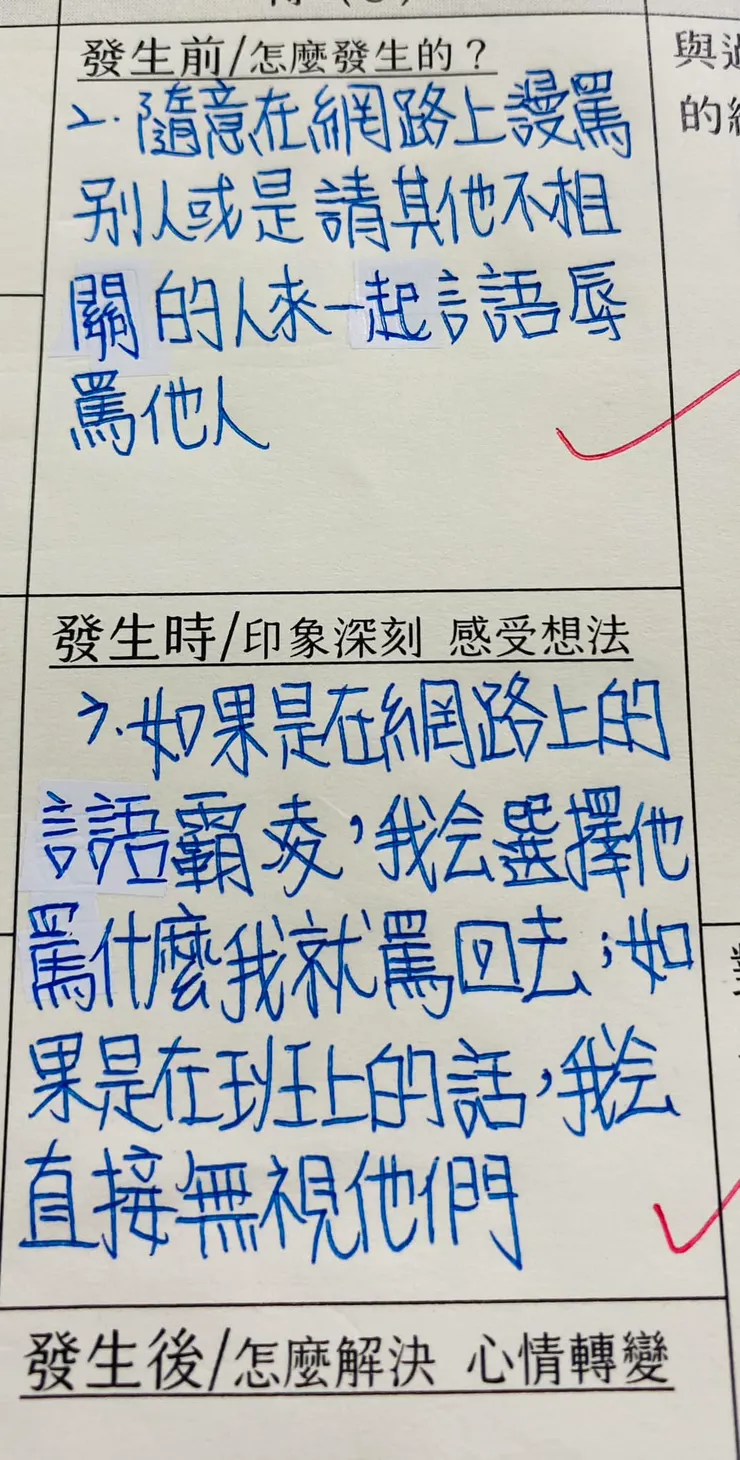 發生前/怎麼發生的？
與過
的經
2.隨意在網路上謾罵
別人或是請其他不相
關的人來一起言語辱
罵他人
發生時/印象深刻 感受想法
3.如果是在網路上的
言語霸凌，我会選擇他
罵什麼我就罵回去；如
果是在班上的話，我会
直接無視他們
發生後/怎麼解決 心情轉變